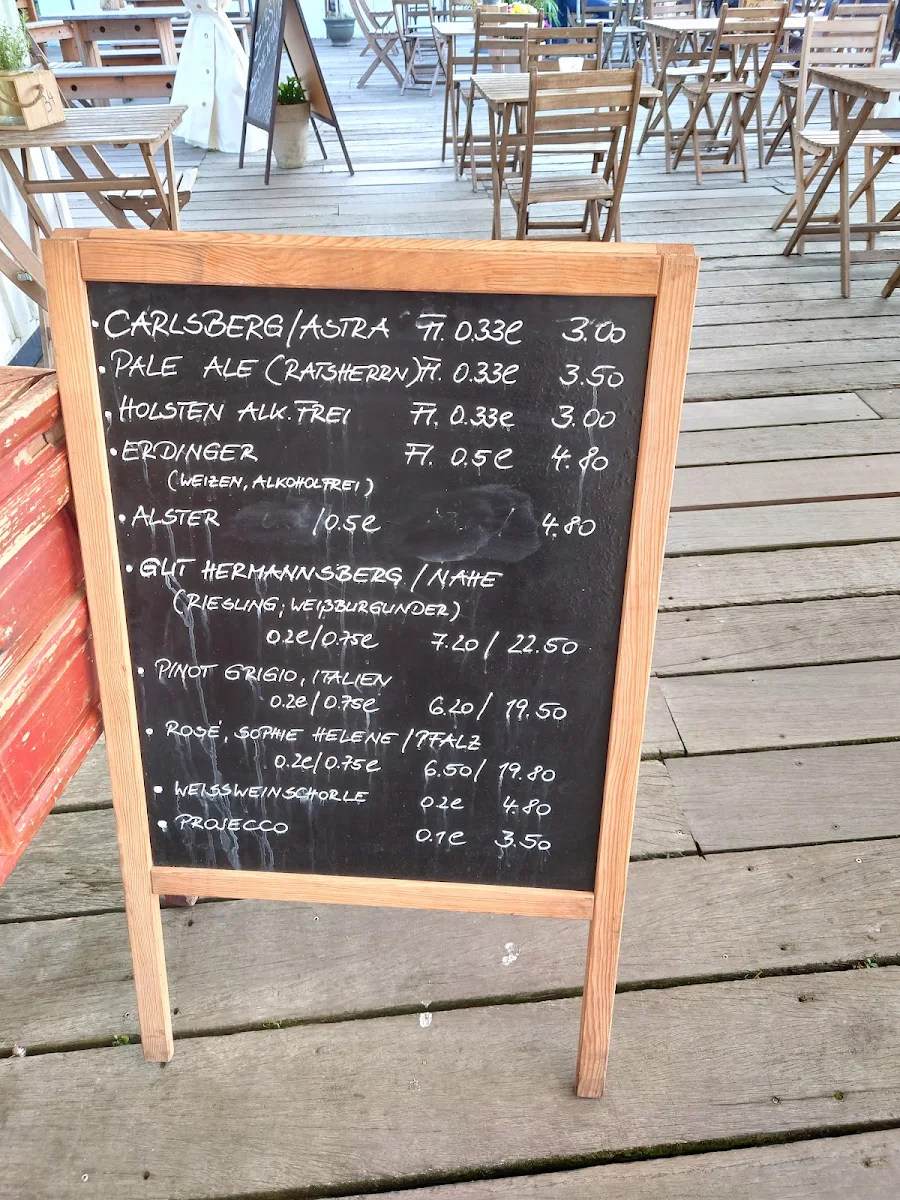 • CARLSBERG/ASTRA Fl. 0.33l 3.00
• PALE ALE (RATSHERRN) Fl. 0.33l 3.50
• HOLSTEN ALK. FREI Fl. 0.33l 3.00
• ERDINGER Fl. 0.5l 4.80
(WEIZEN, ALKOHOLFREI)
• ALSTER /0.5l 4.80
• GUT HERMANNSBERG / NAHE
(RIESLING, WEIßBURGUNDER)
0.2l/0.75l 7.20 / 22.50
• PINOT GRIGIO, ITALIEN
0.2l/0.75l 6.20 / 19.50
• ROSÉ, SOPHIE HELENE / PFALZ
0.2l/0.75l 6.50 / 19.80
• WEISSWEINSCHORLE 0.2l 4.80
• PROSECCO 0.1l 3.50